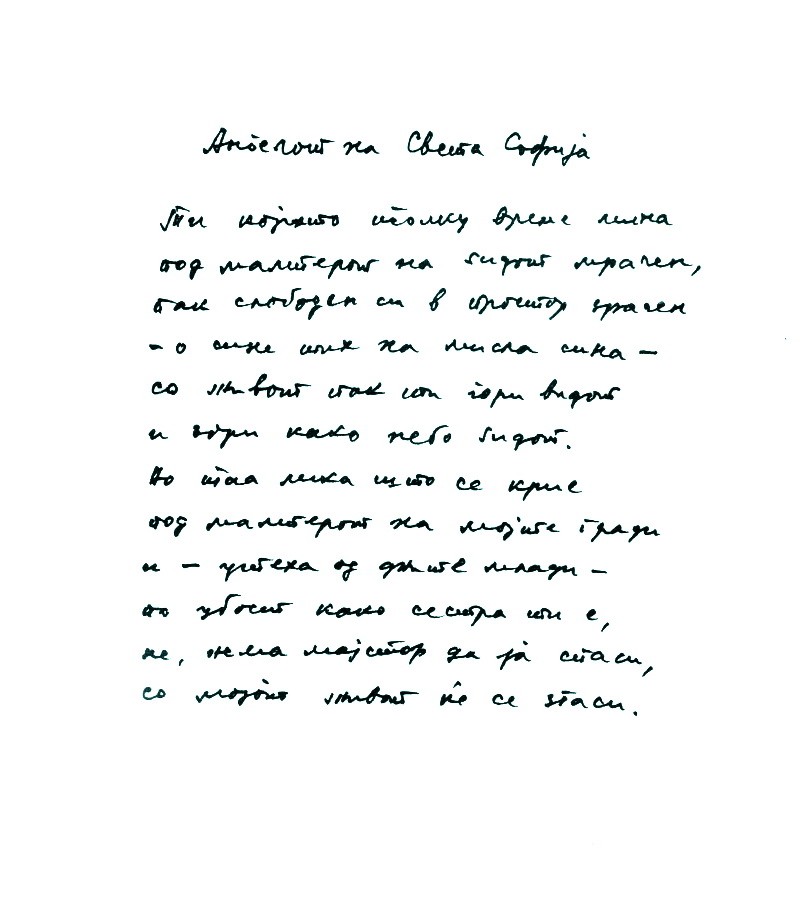 Ангелот на Света Софија
Ти којшто толку време мина
под малтерот на ѕидот мрачен,
пак слободен си в простор зрачен
- о сине лик на мисла сина -
со живот пак ти гори видот
и зори како небо ѕидот.
Но таа лика што се крие
под малтерот на мојте гради
и - утеха од дните млади -
по убост како сестра ти е,
не, нема мајстор да ја спаси,
со мојот живот ќе се згаси.